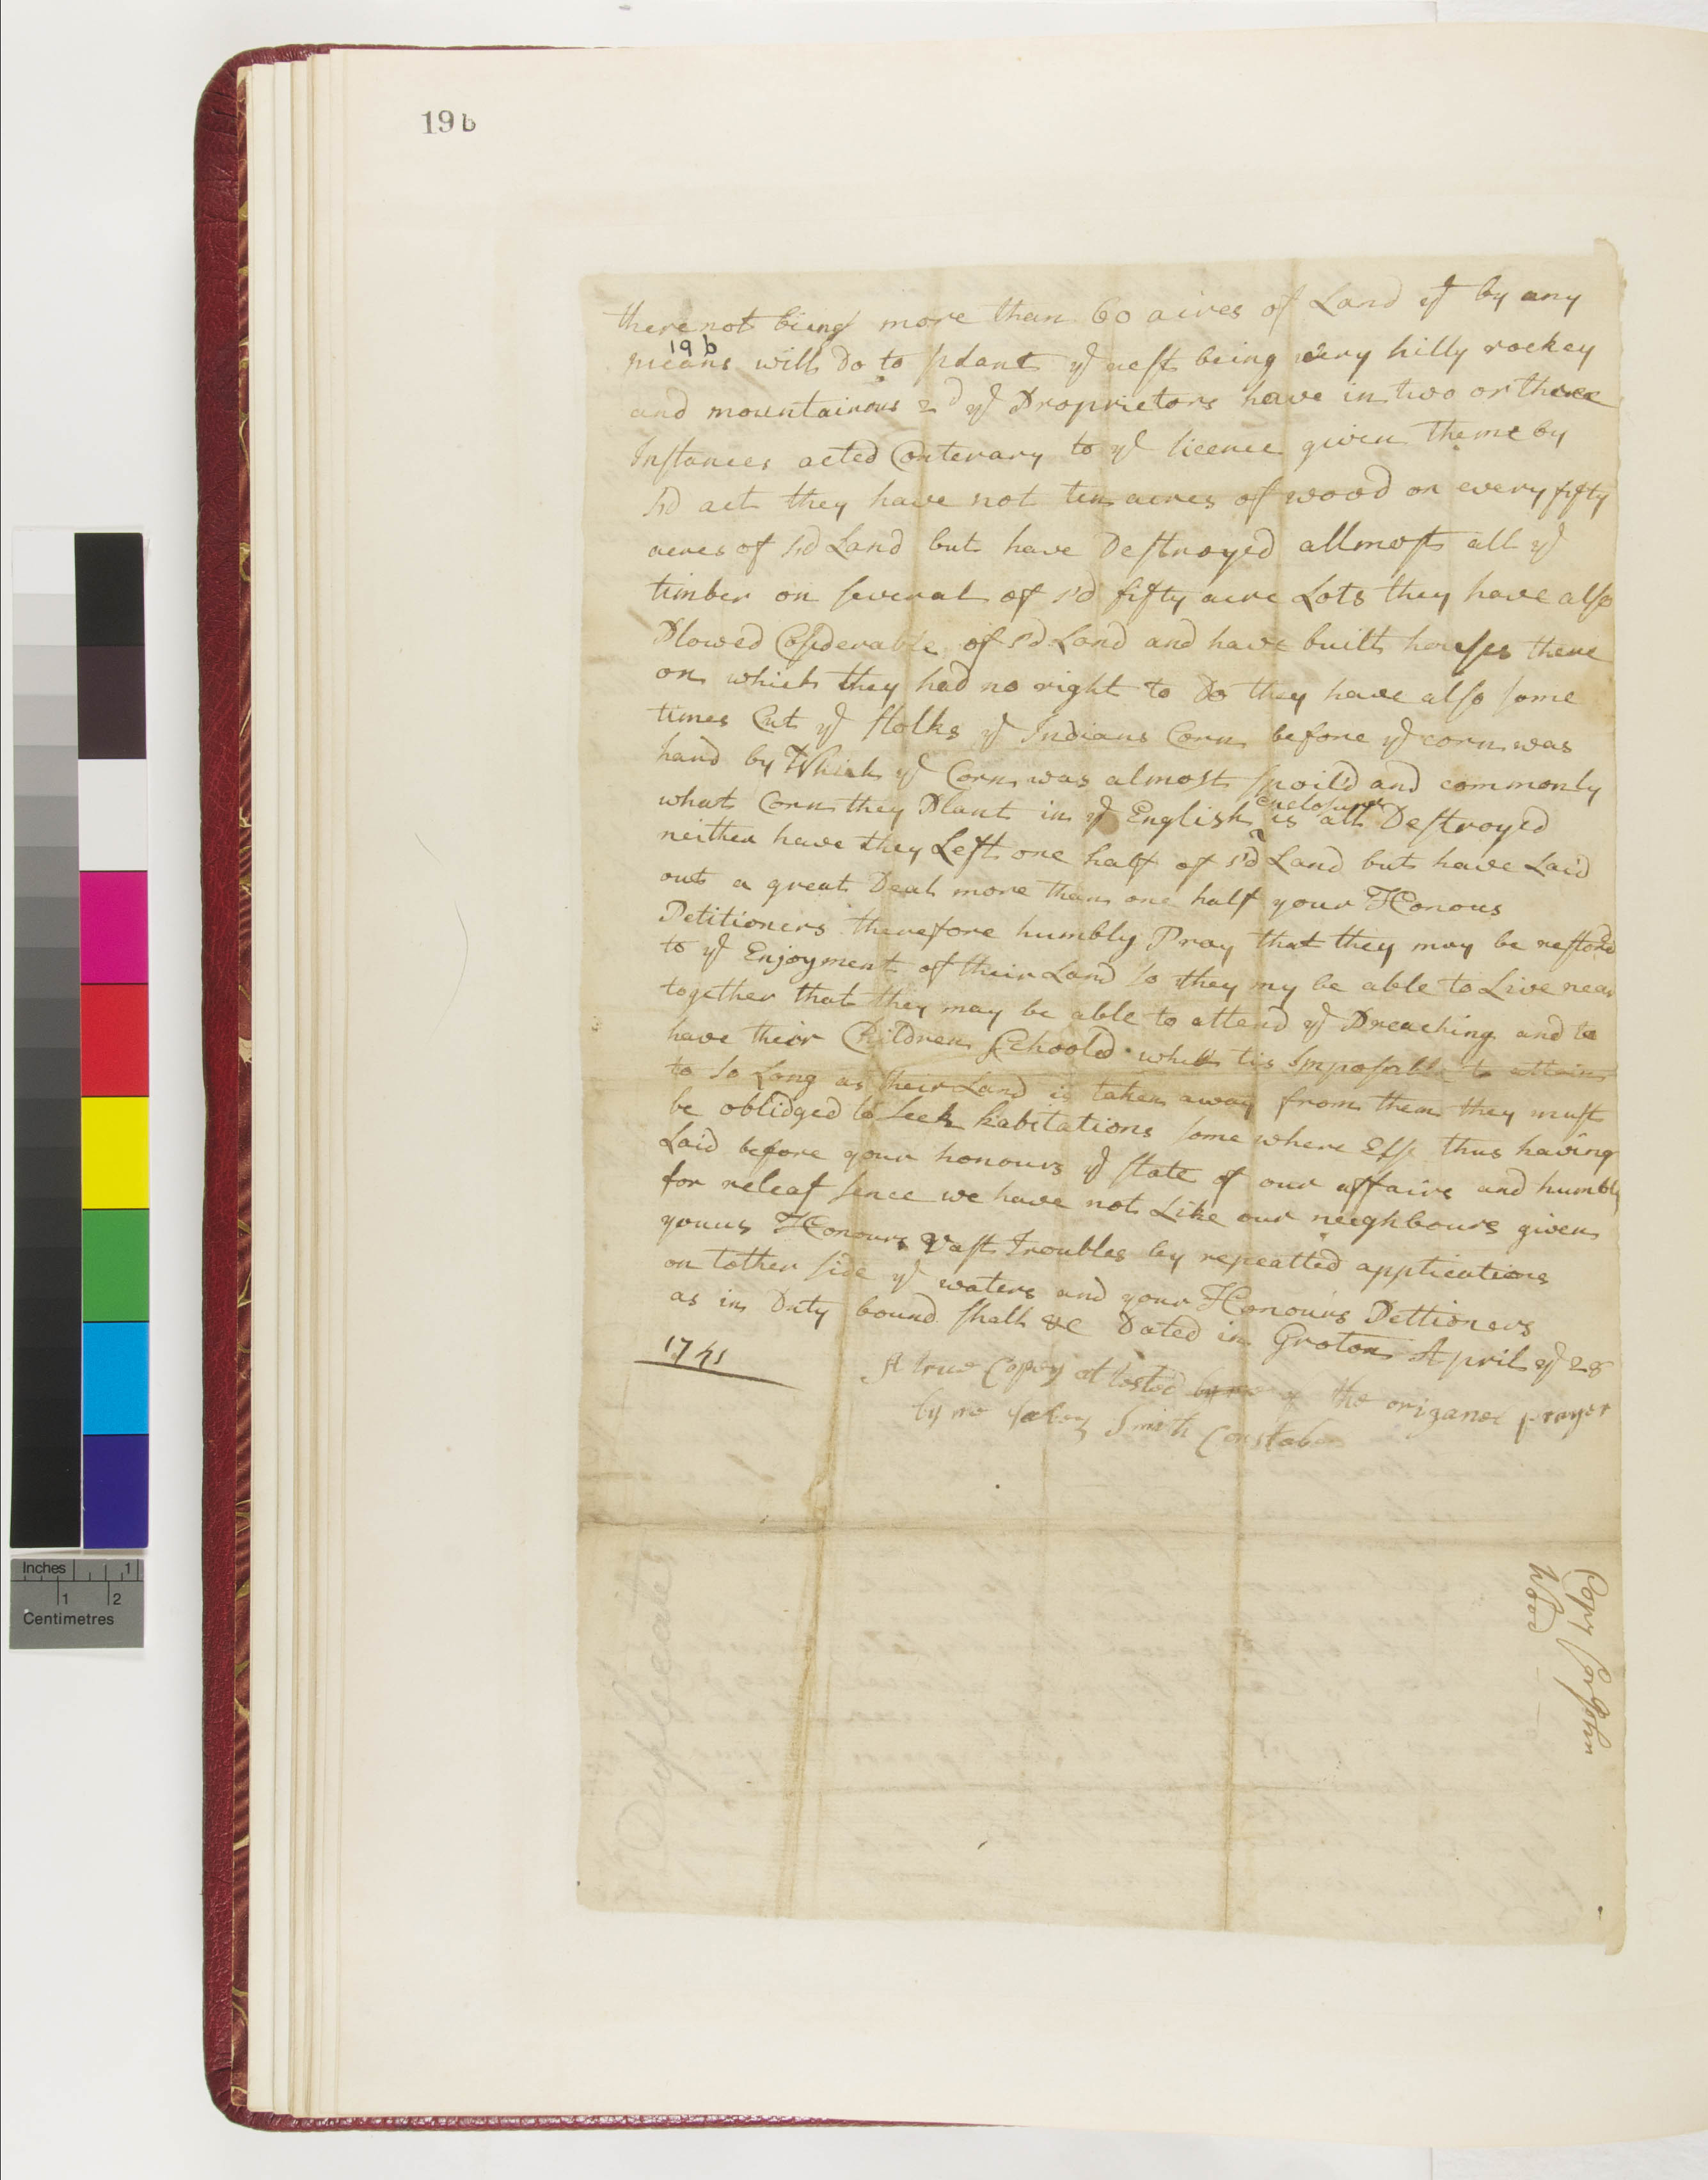 19 b
there not bieng more than 60 aires of Land yt by any
19 b
means will Do to plant ye rest being very hilly rockey
and mountainous 2d ye Proprietors have in two or three
Instances acted Conterary to ye licence given theme by
sd act they have not ten acres of wood on every fifty
acres of sd Land but have Destroyed allmost all ye
timber on several of sd fifty acre Lots they have also
Plowed Cosiderable of sd Land and have built houses there
on which they had no right to Do they have also some
times Cut ye stolks ye Indians Corn before ye corn was
hard by Which ye Corn was almost spoil'd and commonly
enclosures
what Corn they Plant in ye English ^ is all Destroyed
neither have they Left one half of sd Land but have Laid
out a great Deal more then one half your Honous
Petitioners therefore humbly Pray that they may be restord
to ye Enjoyment of their Land so they my be able to Live near
together that they may be able to attend ye Preaching and to
have their Children Schooled which tis Imposible to attain
to so Long as their Land is taken away from them they must
be oblidged to seek habitations some where Else thus having
Laid before your honours ye state of our affairs and humbly
for releaf sence we have not Like our neighbours given
youus Honours Vast Troubles by repeatted applications
on tother side ye waters and your Honours Pettioners
as in Duty bound shall &c Dated in Groton April ye 28
1741
A true Copey attested by me of the origanel prayer
by me Smith Constable
Copy
John
Wood
Duplicate